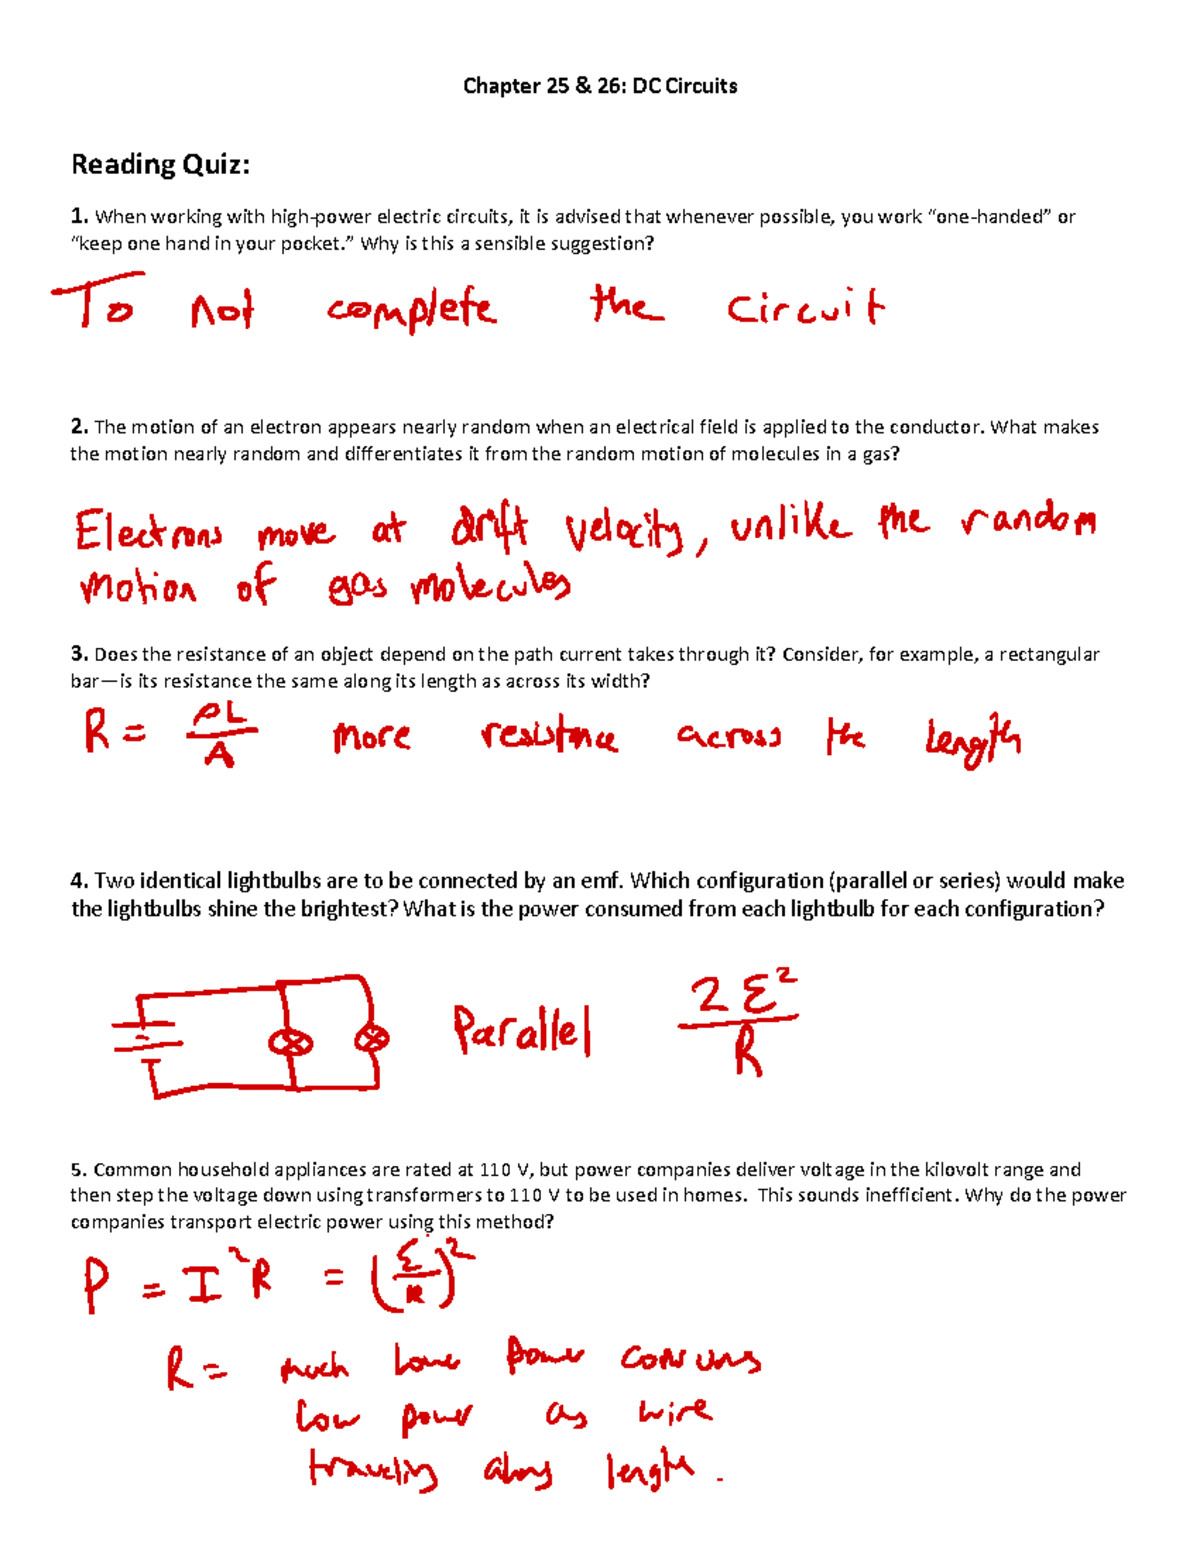 Chapter 25 & 26: DC Circuits
Reading Quiz:
1. When working with high-power electric circuits, it is advised that whenever possible, you work “one-handed” or
“keep one hand in your pocket.” Why is this a sensible suggestion?
To not complete the circuit
2. The motion of an electron appears nearly random when an electrical field is applied to the conductor. What makes
the motion nearly random and differentiates it from the random motion of molecules in a gas?
Electrons move at drift velocity, unlike the random
motion of gas molecules
3. Does the resistance of an object depend on the path current takes through it? Consider, for example, a rectangular
bar—is its resistance the same along its length as across its width?
R = ρL/A more resistance across the length
4. Two identical lightbulbs are to be connected by an emf. Which configuration (parallel or series) would make
the lightbulbs shine the brightest? What is the power consumed from each lightbulb for each configuration?
Parallel 2ℰ²/R
5. Common household appliances are rated at 110 V, but power companies deliver voltage in the kilovolt range and
then step the voltage down using transformers to 110 V to be used in homes. This sounds inefficient. Why do the power
companies transport electric power using this method?
P = I²R = (ℰ/R)²
R = much power
low power as wire
traveling along length.